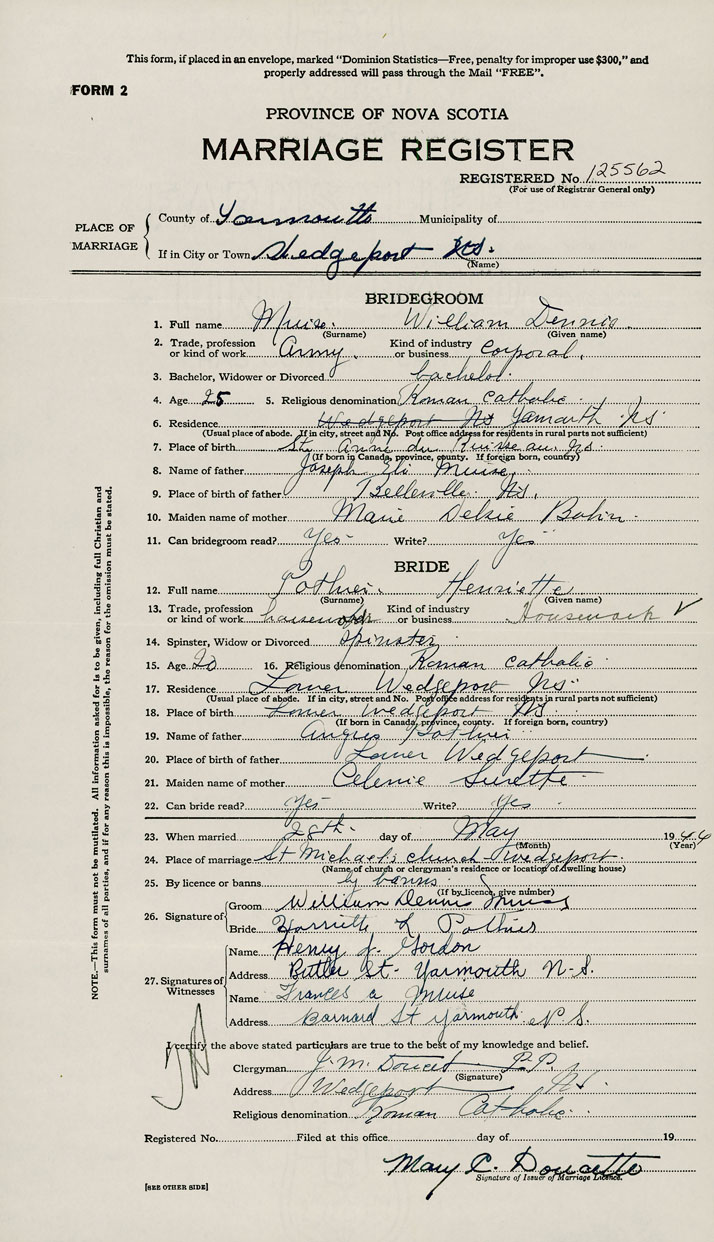 This form, if placed in an envelope, marked "Dominion Statistics—Free, penalty for improper use $300," and
properly addressed will pass through the Mail "FREE".
FORM 2
PROVINCE OF NOVA SCOTIA
MARRIAGE REGISTER
REGISTERED No. 125562
(For use of Registrar General only)
PLACE OF MARRIAGE
County of Yarmouth Municipality of
If in City or Town Wedgeport N.S.
(Name)
BRIDEGROOM
1. Full name Muise. William Dennis.
(Surname) (Given name)
2. Trade, profession or kind of work Army. Kind of industry or business Corporal.
3. Bachelor, Widower or Divorced bachelor.
4. Age 25 5. Religious denomination Roman Catholic
6. Residence Wedgeport NS Yarmouth NS
(Usual place of abode. If in city, street and No. Post office address for residents in rural parts not sufficient)
7. Place of birth St. Anne du Ruisseau, NS.
(If born in Canada, province, county. If foreign born, country)
8. Name of father Joseph Eli Muise,
9. Place of birth of father Belleville NS.
10. Maiden name of mother Marie Delsie
11. Can bridegroom read? Yes- Write? Yes
BRIDE
12. Full name Pothier. Henriette
(Surname) (Given name)
13. Trade, profession or kind of work housework Kind of industry or business Housework ✓
14. Spinster, Widow or Divorced Spinster
15. Age 20 16. Religious denomination Roman Catholic
17. Residence Lower Wedgeport NS
(Usual place of abode. If in city, street and No. Post office address for residents in rural parts not sufficient)
18. Place of birth Lower Wedgeport NS
(If born in Canada, province, county. If foreign born, country)
19. Name of father Angus Pothier
20. Place of birth of father Lower Wedgeport
21. Maiden name of mother Celenie Surette
22. Can bride read? Yes- Write? Yes
23. When married 28th. day of May 1944
(Month) (Year)
24. Place of marriage St Michael's church Wedgeport.
(Name of church or clergyman's residence or location of dwelling house)
25. By licence or banns by banns
(If by licence, give number)
26. Signature of
Groom William Dennis Muise
Bride Harriette L Pothier
27. Signatures of Witnesses
Name Henry J. Gordon
Address Butler St- Yarmouth N-S.
Name Frances A Muse
Address Barnard St Yarmouth N.S.
I certify the above stated particulars are true to the best of my knowledge and belief.
Clergyman J. M. Doucet P.P.
(Signature)
Address Wedgeport NS
Religious denomination Roman Catholic
Registered No. Filed at this office day of 19
Mary C. Doucette
Signature of Issuer of Marriage Licence.
[SEE OTHER SIDE]
NOTE.—This form must not be mutilated. All information asked for is to be given, including full Christian and
surnames of all parties, and if for any reason this is impossible, the reason for the omission must be stated.